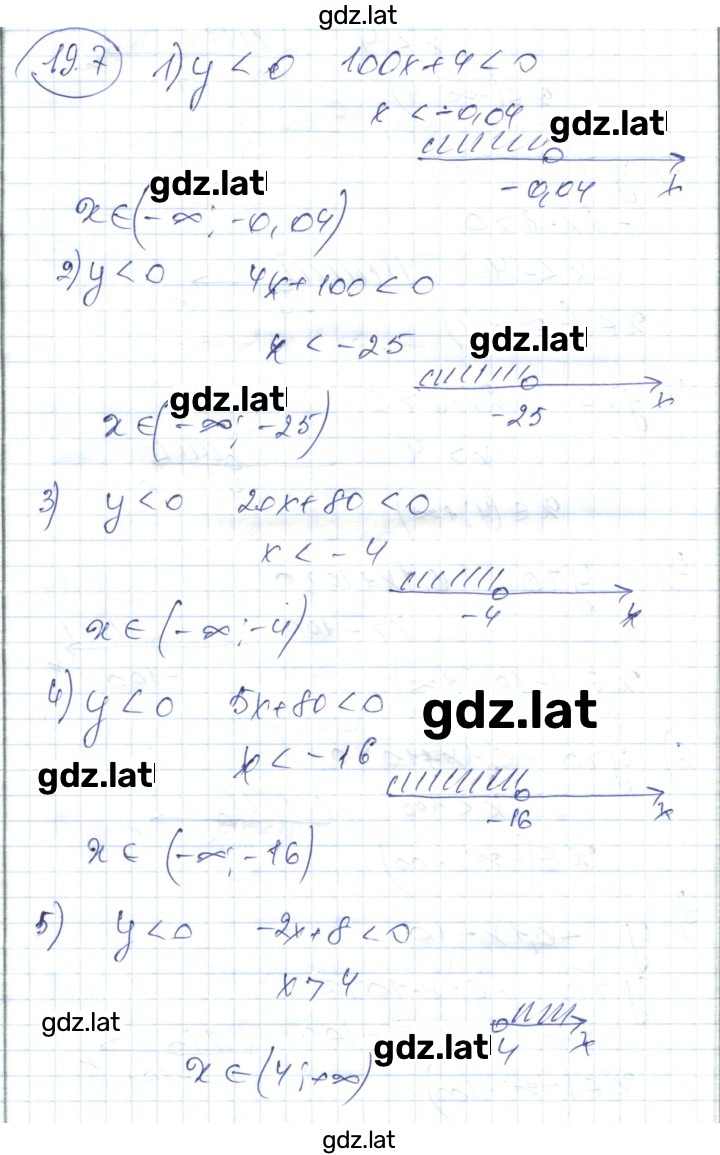 gdz.lat
19.7 1) y < 0 100x+4<0
x < -0,04
gdz.lat
-0,04 x
gdz.lat
x∈(-∞; -0,04)
2) y<0 4x+100<0
x < -25
gdz.lat
-25 x
gdz.lat
x∈(-∞; -25)
3) y<0 20x+80<0
x < -4
-4 x
x∈(-∞;-4)
4) y<0 5x+80<0
gdz.lat
x<-16
gdz.lat
-16 x
x∈(-∞;-16)
5) y<0 -2x+8<0
x>4
gdz.lat
4 x
gdz.lat
x∈(4;+∞)
gdz.lat